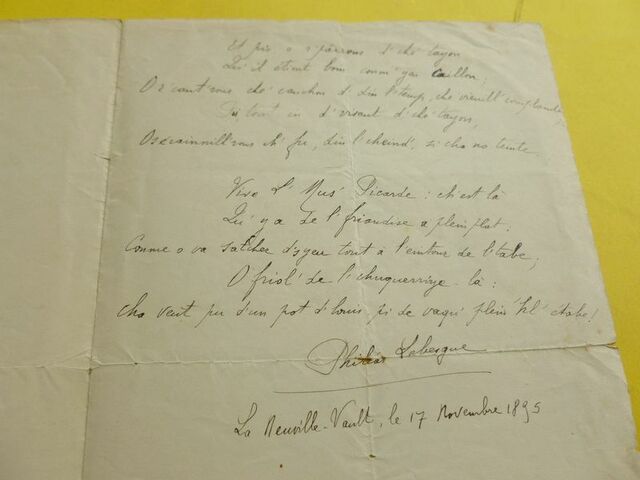 Et pis o r'parrons d'ché tayon
Qu'il étint bon comm' yau caillon;
O r'cant'rons ché canchon d' din l'temps, che vieull' complaintes
Pi tout en d'visant d'ché tayon,
Os écainnill'rons ch' fu, din l'cheind', si cho no teinte.
Vive L' Mus' Picarde : ch'est là
Qu'y a de l'friandise a plein plat;
Comme o va s'atcher d'syeu tout à l'entour de l'tabe;
O friol' de l'chuquerriye là :
Cho veut pu d'un pot d'louis pi de vaqu' plein' l'étabe!
Philéas Lebesgue
La Neuville-Vault, le 17 Novembre 1895